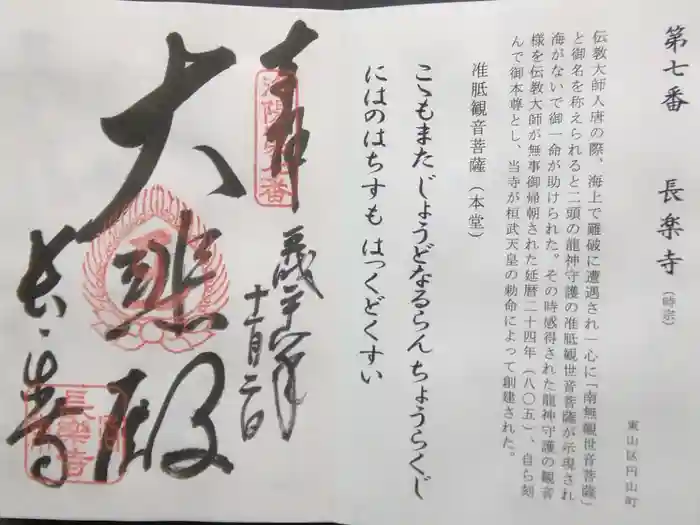 第七番 長楽寺（時宗）
東山区円山町
伝教大師入唐の際、海上で難破に遭遇され一心に「南無観世音菩薩」
と御名を称えられると二頭の龍神守護の准胝観世音菩薩が示現され
海がないで御一命が助けられた。その時感得された龍神守護の観音
様を伝教大師が無事御帰朝された延暦二十四年（八〇五）、自ら刻
んで御本尊とし、当寺が桓武天皇の勅命によって創建された。
准胝観音菩薩（本堂）
こゝもまた じょうどなるらん ちょうらくじ
にはのはちすも はっくどくすい
奉拝
十一月二日
大悲殿
長楽寺
長樂寺